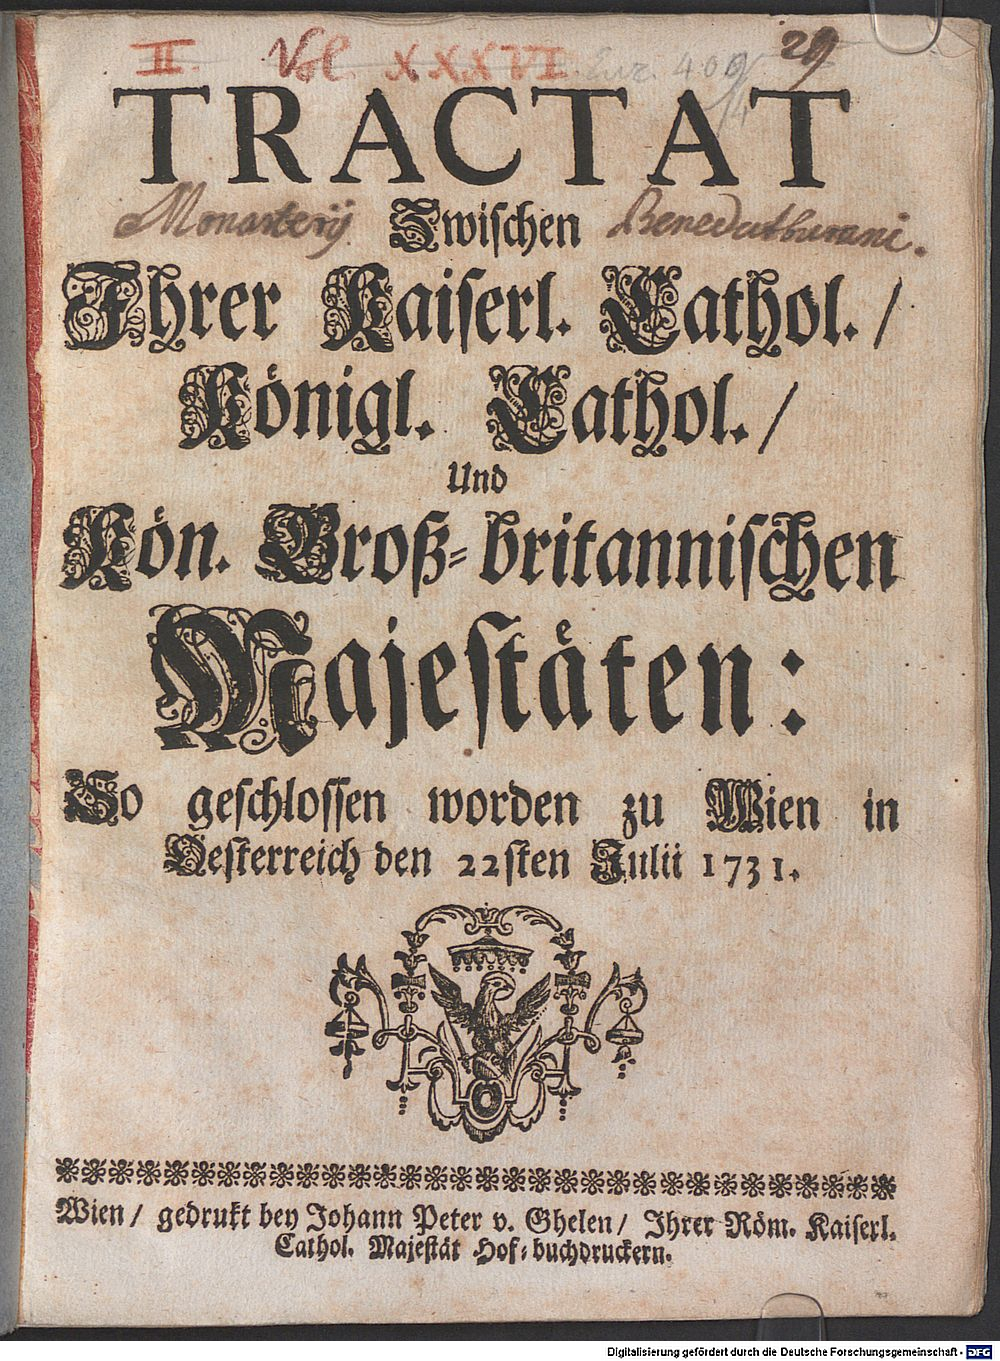 II. Vol. XXXVI. 29
TRACTAT
Monasterij Zwischen Benedictburani.
Ihrer Kaiserl. Cathol. /
Königl. Cathol. /
Und
Kön. Groß-britannischen
Majestäten:
So geschlossen worden zu Wien in
Oesterreich den 22sten Julii 1731.
Wien / gedrukt bey Johann Peter v. Ghelen / Ihrer Röm. Kaiserl.
Cathol. Majestät Hof-buchdruckern.
Digitalisierung gefördert durch die Deutsche Forschungsgemeinschaft - DFG